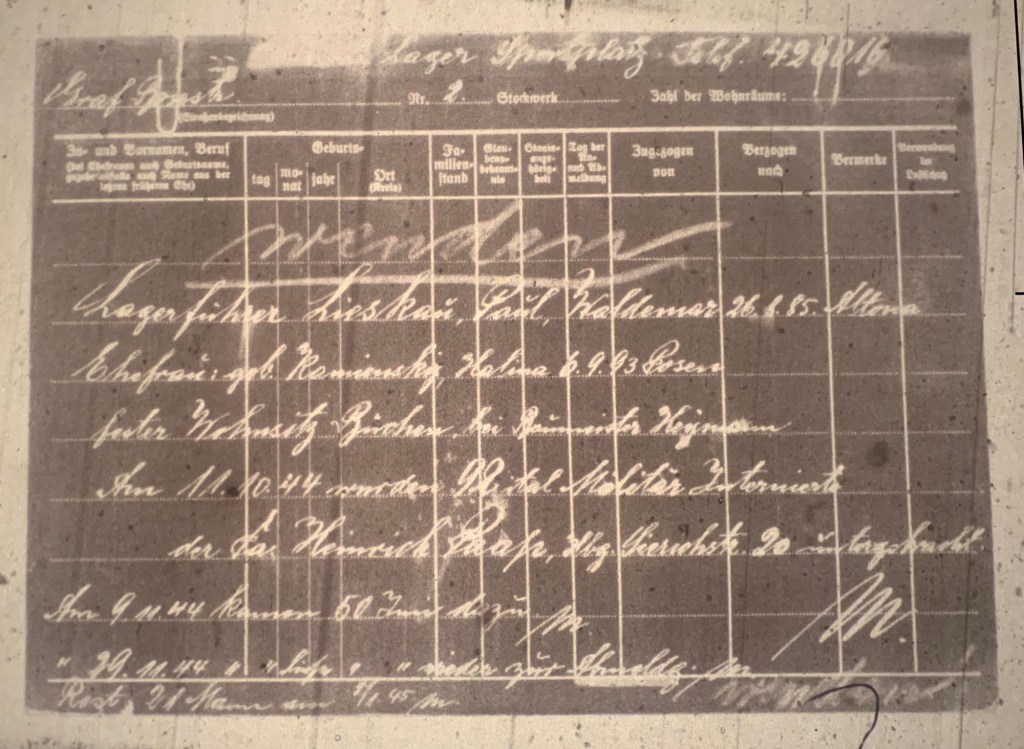 Lager Sportplatz. Telef. 426016
Graf Nr. 2. Stockwerk Zahl der Wohnräume:
(Straßenbezeichnung)
Zu- und Vornamen, Beruf
(bei Ehefrauen auch Geburtsname,
gegebenenfalls auch Name aus der
letzten früheren Ehe)
Geburts-
tag
mo-
nat
jahr
Ort
(Kreis)
Fa-
milien-
stand
Glau-
bens-
bekennt-
nis
Staats-
ange-
hörig-
keit
Tag der
An-
und Ab-
meldung
Zugezogen
von
Verzogen
nach
Vermerke
Verwendung
im
Luftschutz
Lagerführer Lieskau, Paul, Waldemar 26.6.85. Altona
Ehefrau: geb. Kamiensky, Halina 6.9.93 Posen
fester Wohnsitz Büchen, bei Baumeister Heymann
Am 11.10.44 wurden 99 ital. Militär Internierte
der Fa. Heinrich Paap, Hbg. 20 untergebracht.
Am 9.11.44 kamen 50 dazu
" 29.11.44 " " " " wieder zur Anmeldg.
Rest 21 Mann am 45